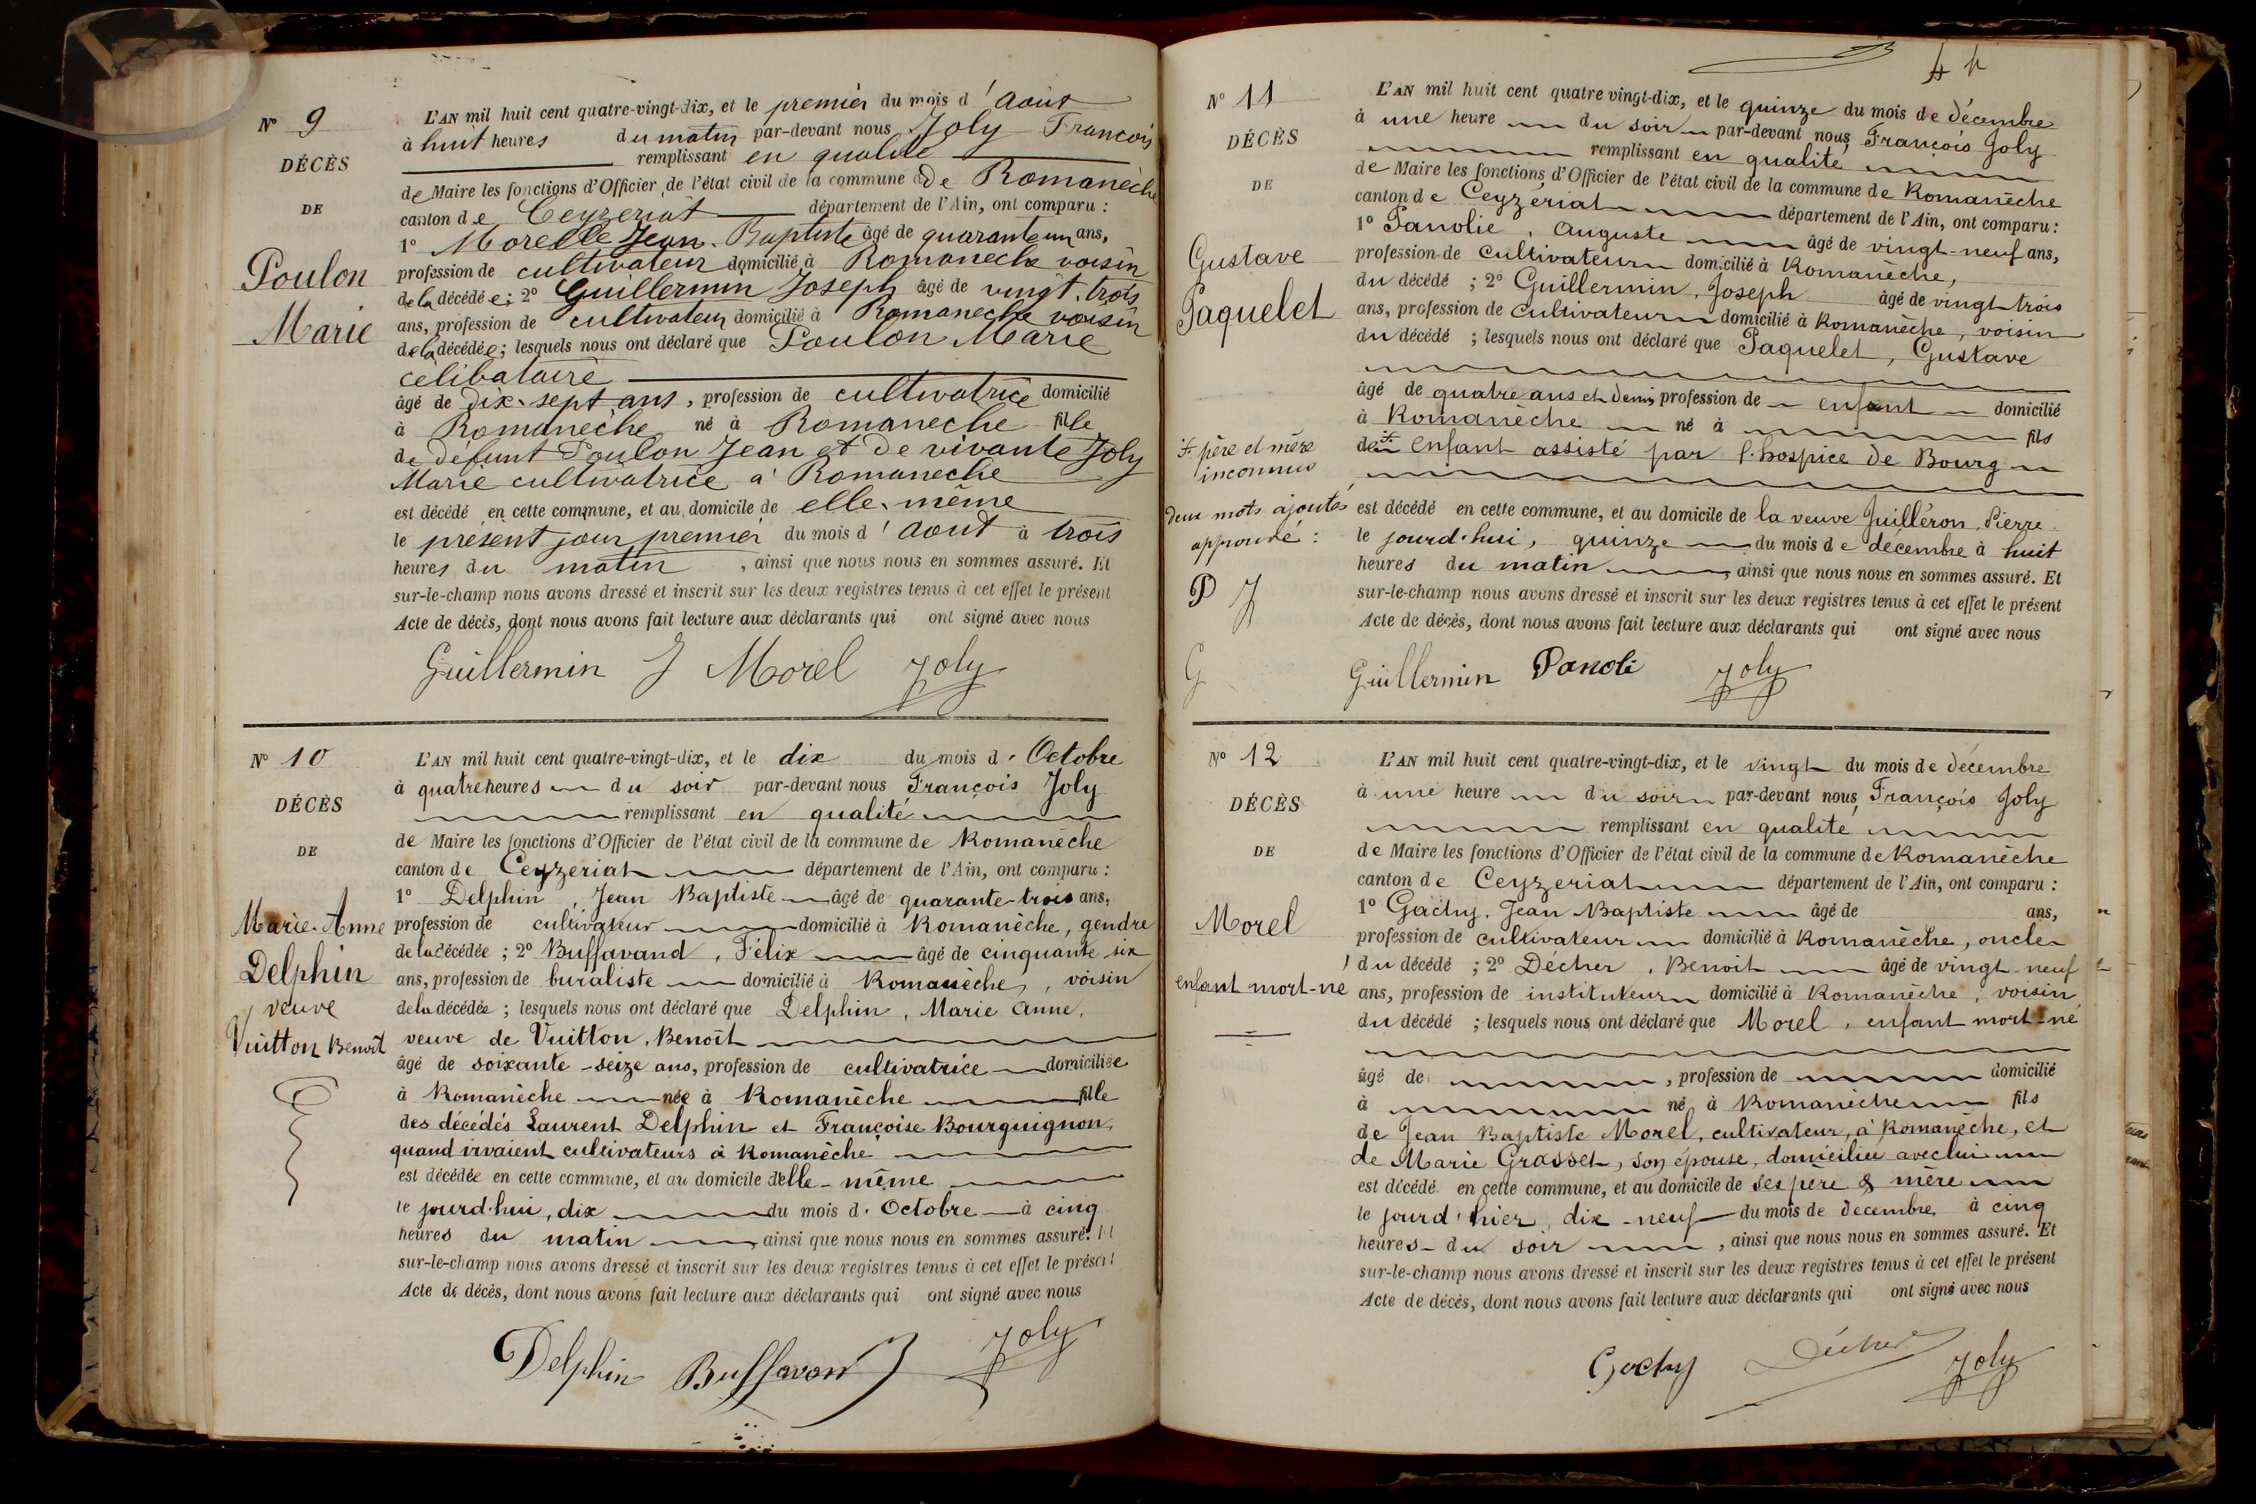 N° 9
DÉCÈS
DE
Poulon
Marie
L'AN mil huit cent quatre-vingt-dix, et le premier du mois d'Aout
à huit heures du matin par-devant nous Joly François
remplissant en qualité
de Maire les fonctions d'Officier de l'état civil de la commune de Romanèche
canton de Ceyzeriat département de l'Ain, ont comparu :
1° Morelle Jean-Baptiste âgé de quarante un ans,
profession de cultivateur domicilié à Romanèche voisin
de la décédée ; 2° Guillermin Joseph âgé de vingt-trois
ans, profession de cultivateur domicilié à Romanèche voisin
de la décédée ; lesquels nous ont déclaré que Poulon Marie
celibataire
âgé de dix-sept ans, profession de cultivatrice domicilié
à Romanèche né à Romaneche fille
de défunt Poulon Jean et de vivante Joly
Marie cultivatrice à Romaneche
est décédé en cette commune, et au domicile de elle-même
le présent jour premier du mois d'Aout à trois
heures du matin, ainsi que nous nous en sommes assuré. Et
sur-le-champ nous avons dressé et inscrit sur les deux registres tenus à cet effet le présent
Acte de décès, dont nous avons fait lecture aux déclarants qui ont signé avec nous
Guillermin J Morel Joly
N° 10
DÉCÈS
DE
Marie-Anne
Delphin
veuve
Vuitton Benoît
L'AN mil huit cent quatre-vingt-dix, et le dix du mois d'Octobre
à quatre heures du soir par-devant nous François Joly
remplissant en qualité
de Maire les fonctions d'Officier de l'état civil de la commune de Romanèche
canton de Ceyzeriat département de l'Ain, ont comparu :
1° Delphin, Jean Baptiste âgé de quarante-trois ans,
profession de cultivateur domicilié à Romanèche, gendre
de la décédée ; 2° Buffavand, Félix âgé de cinquante six
ans, profession de buraliste domicilié à Romanèche, voisin
de la décédée ; lesquels nous ont déclaré que Delphin, Marie Anne,
veuve de Vuitton, Benoît
âgé de soixante-seize ans, profession de cultivatrice domiciliée
à Romanèche née à Romanèche fille
des décédés Laurent Delphin et Françoise Bourguignon,
quand vivaient cultivateurs à Romanèche
est décédée en cette commune, et au domicile d'elle-même
le jourd'hui, dix du mois d'Octobre à cinq
heures du matin, ainsi que nous nous en sommes assuré. Et
sur-le-champ nous avons dressé et inscrit sur les deux registres tenus à cet effet le présent
Acte de décès, dont nous avons fait lecture aux déclarants qui ont signé avec nous
Delphin Buffavand Joly
N° 11
DÉCÈS
DE
Gustave
Paquelet
‡ père et mère
inconnus
deux mots ajoutés
approuvé :
P J
G
L'AN mil huit cent quatre vingt-dix, et le quinze du mois de décembre
à une heure du soir par-devant nous François Joly
remplissant en qualité
de Maire les fonctions d'Officier de l'état civil de la commune de Romanèche
canton de Ceyzériat département de l'Ain, ont comparu :
1° Panolie, Auguste âgé de vingt-neuf ans,
profession de cultivateur domicilié à Romanèche,
du décédé ; 2° Guillermin, Joseph âgé de vingt trois
ans, profession de cultivateur domicilié à Romanèche, voisin
du décédé ; lesquels nous ont déclaré que Paquelet, Gustave
âgé de quatre ans et demi profession de enfant domicilié
à Romanèche né à fils
de ‡ enfant assisté par l'hospice de Bourg
est décédé en cette commune, et au domicile de la veuve Juilléron, Pierre
le jourd'hui, quinze du mois de décembre à huit
heures du matin, ainsi que nous nous en sommes assuré. Et
sur-le-champ nous avons dressé et inscrit sur les deux registres tenus à cet effet le présent
Acte de décès, dont nous avons fait lecture aux déclarants qui ont signé avec nous
Guillermin Panoli Joly
N° 12
DÉCÈS
DE
Morel
enfant mort-né
L'AN mil huit cent quatre-vingt-dix, et le vingt du mois de décembre
à une heure du soir par-devant nous François Joly
remplissant en qualité
de Maire les fonctions d'Officier de l'état civil de la commune de Romanèche
canton de Ceyzeriat département de l'Ain, ont comparu :
1° Gachy, Jean Baptiste âgé de ans,
profession de cultivateur domicilié à Romanèche, oncle
du décédé ; 2° Décher, Benoit âgé de vingt-neuf
ans, profession de instituteur domicilié à Romanèche, voisin
du décédé ; lesquels nous ont déclaré que Morel, enfant mort-né
âgé de, profession de domicilié
à né à Romanèche fils
de Jean Baptiste Morel, cultivateur, à Romanèche, et
de Marie Grasset, son épouse, domiciliée avec lui
est décédé en cette commune, et au domicile de ses père & mère
le jourd'hier, dix-neuf du mois de décembre à cinq
heures du soir, ainsi que nous nous en sommes assuré. Et
sur-le-champ nous avons dressé et inscrit sur les deux registres tenus à cet effet le présent
Acte de décès, dont nous avons fait lecture aux déclarants qui ont signé avec nous
Gachy Décher Joly